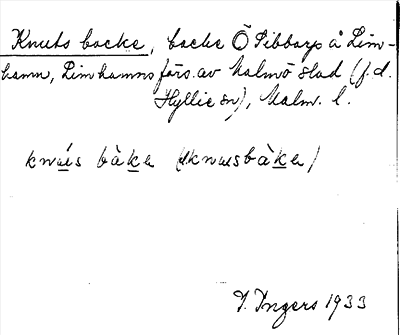 Knuts backe, backe Ö Sibbarp å Lim-
hamn, Limhamns förs. av Malmö stad (f.d.
Hyllie sn), Malm. l.
knus bàka (knusbàka)
I. Ingers 1933